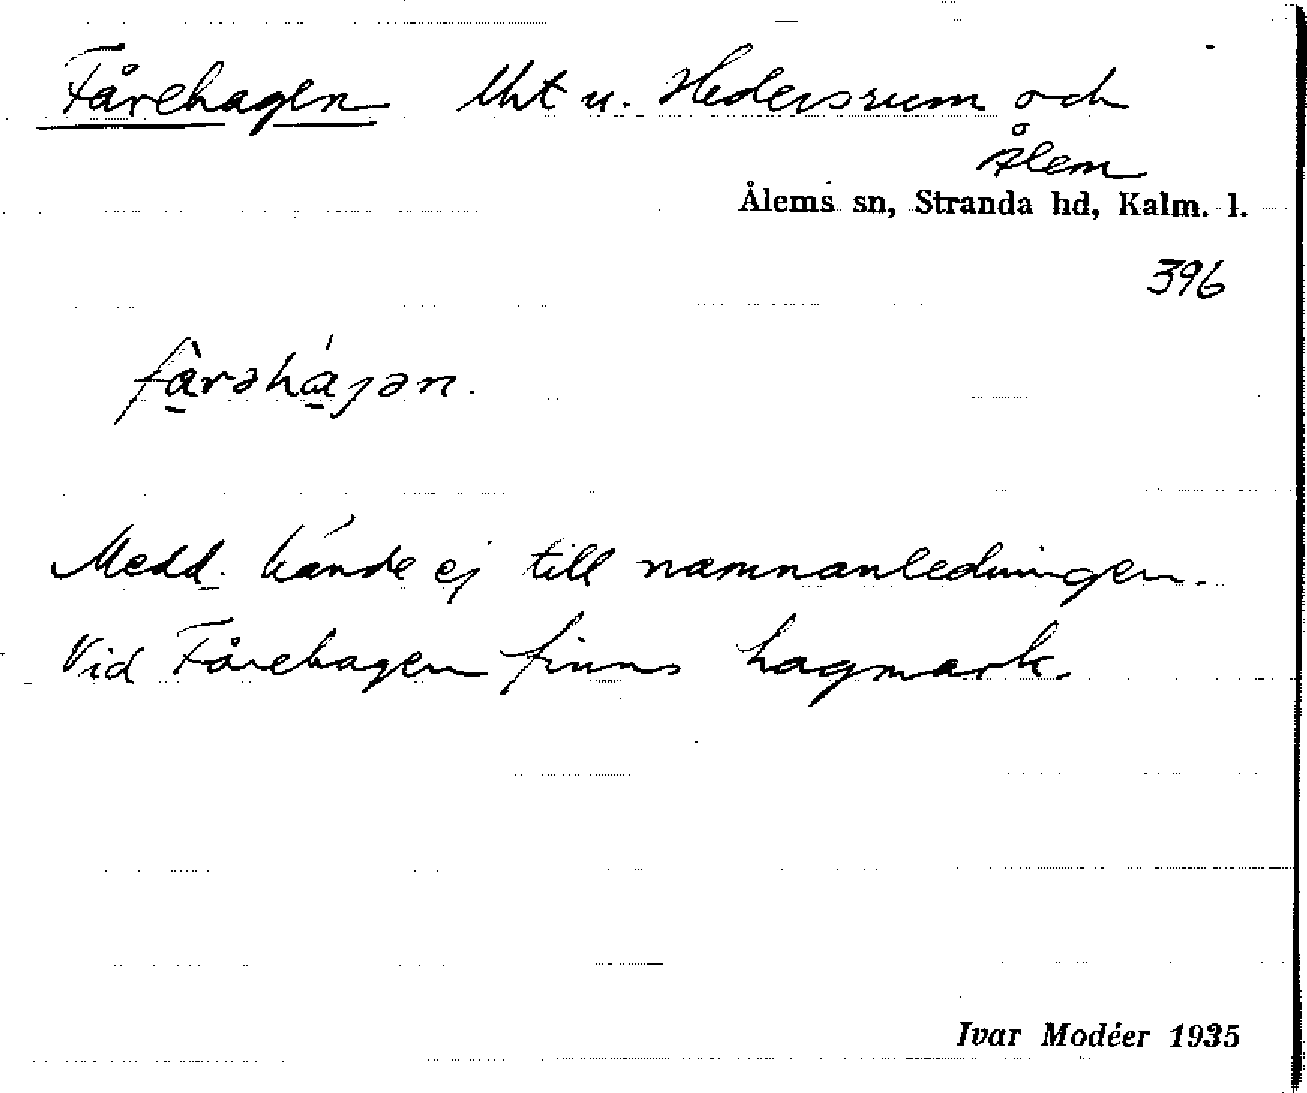 Fårehagen Uht u. Hedersrum och
Ålem
Ålems sn, Stranda hd, Kalm. l.
396
fàrəhájən.
Medd. kände ej till namnanledningen.
Vid Fårehagen finns hagmark.
Ivar Modéer 1935